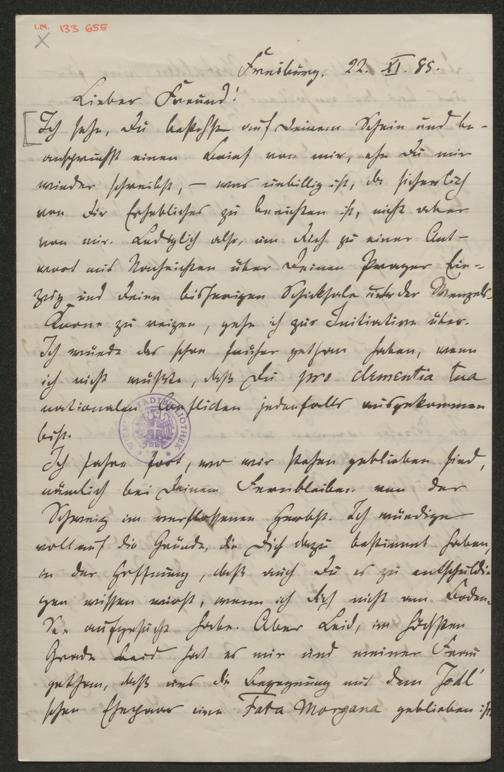 I.N. 133 655
Freiburg, 22. XI. 85.
Lieber Freund!
Ich sehe, Du bestehst auf Deinem Schein und be-
anspruchst einen Brief von mir, ehe Du mir
wieder schreibst, – was unbillig ist, da sicherlich
von Dir Erhebliches zu berichten ist, nicht aber
von mir. Lediglich also, um Dich zu einer Ant-
wort mit Nachrichten über Deinen Prager Ein-
zug und Deine bisherigen Schicksale unter der Wenzels-
Krone zu reizen, gehe ich zur Initiative über.
Ich würde das schon früher gethan haben, wenn
ich nicht wüßte, daß Du pro clementia tua
nationalen Conflicten jedenfalls ausgekommen
bist.
Ich fahre fort, wo wir stehen geblieben sind,
nämlich bei Deinem Fernbleiben von der
Schweiz im verflossenen Herbst. Ich würdige
vollauf die Gründe, die Dich dazu bestimmt haben,
in der Hoffnung, daß auch Du es zu entschuldi-
gen wissen wirst, wenn ich Dich nicht am Boden-
See aufgesucht habe. Aber Leid, im höchsten
Grade Leid hat es mir und meiner Frau
gethan, daß uns die Begegnung mit dem Jodl'
schen Ehepaar eine Fata Morgana geblieben ist.